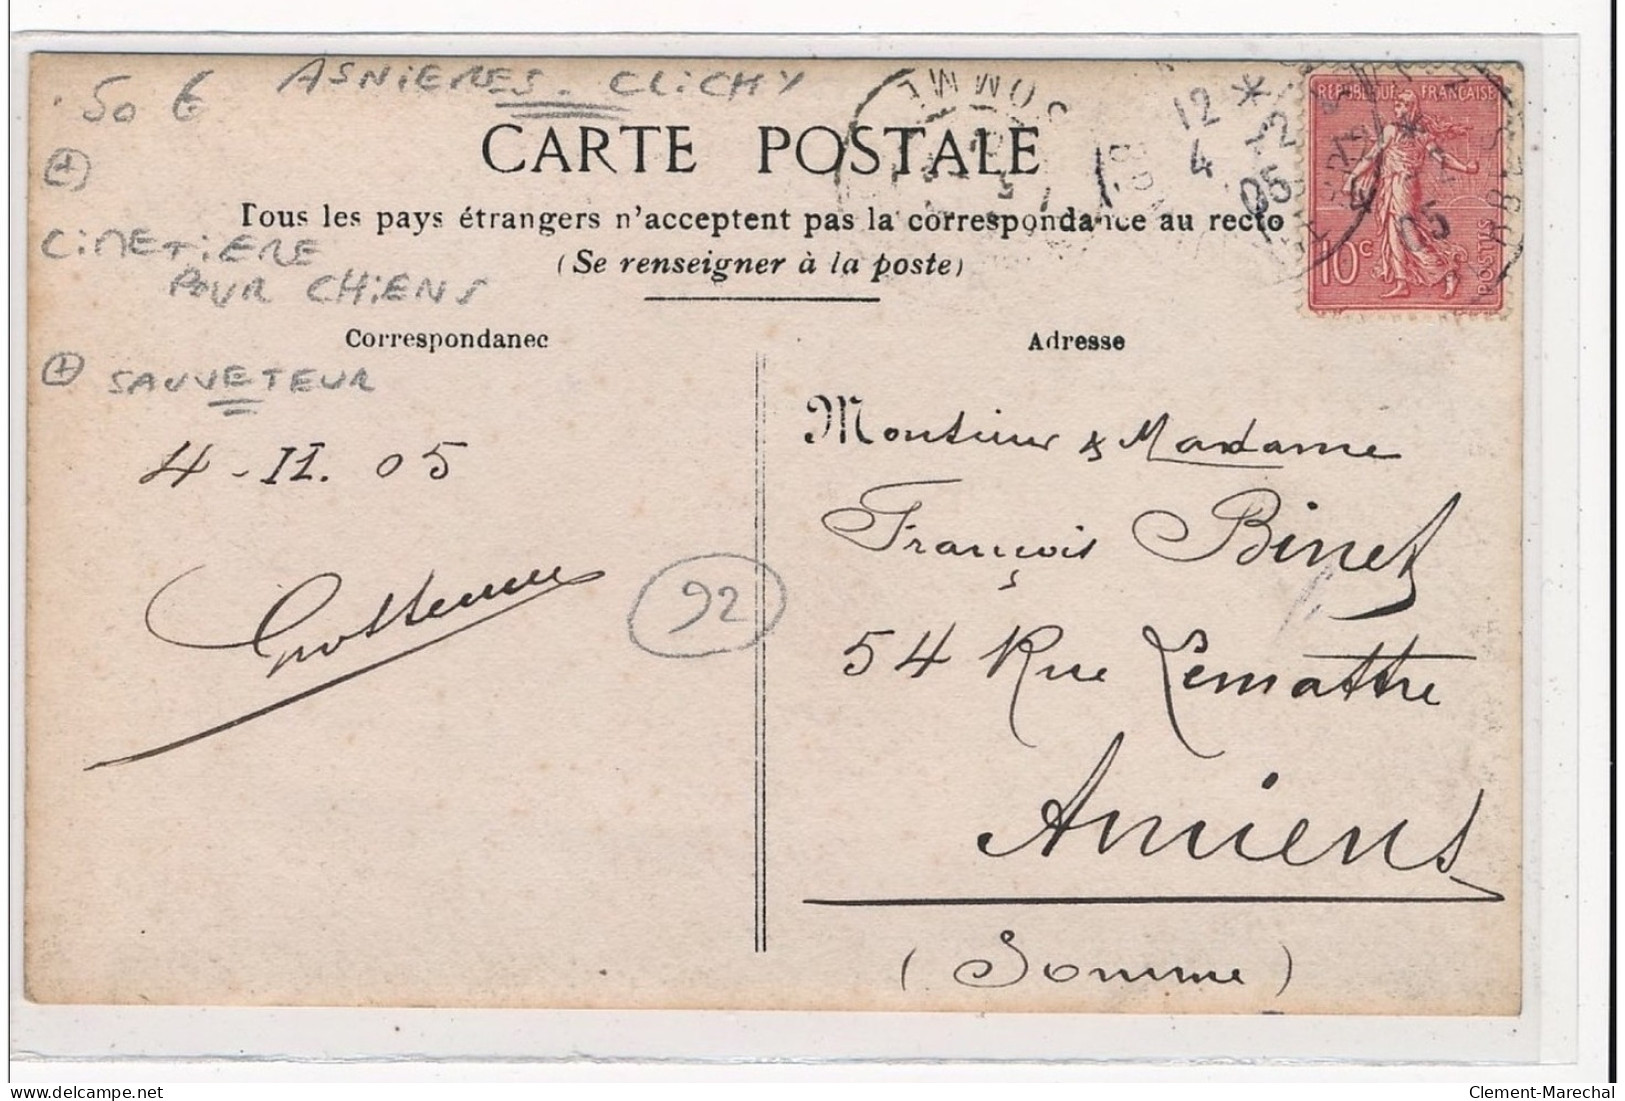 50 €
ASNIERES - CLICHY
CARTE POSTALE
Tous les pays étrangers n'acceptent pas la correspondance au recto
(Se renseigner à la poste)
Correspondanec
Adresse
CIMETIERE
POUR CHIENS
SAUVETEUR
4 - II. 05
92
Monsieur & Madame
François Binet
54 Rue Lemattre
Amiens
(Somme)
REPUBLIQUE FRANÇAISE
10c
POSTES
SOMME
12 *
4 -2
05
05
delcampe.net
Clement-Marechal